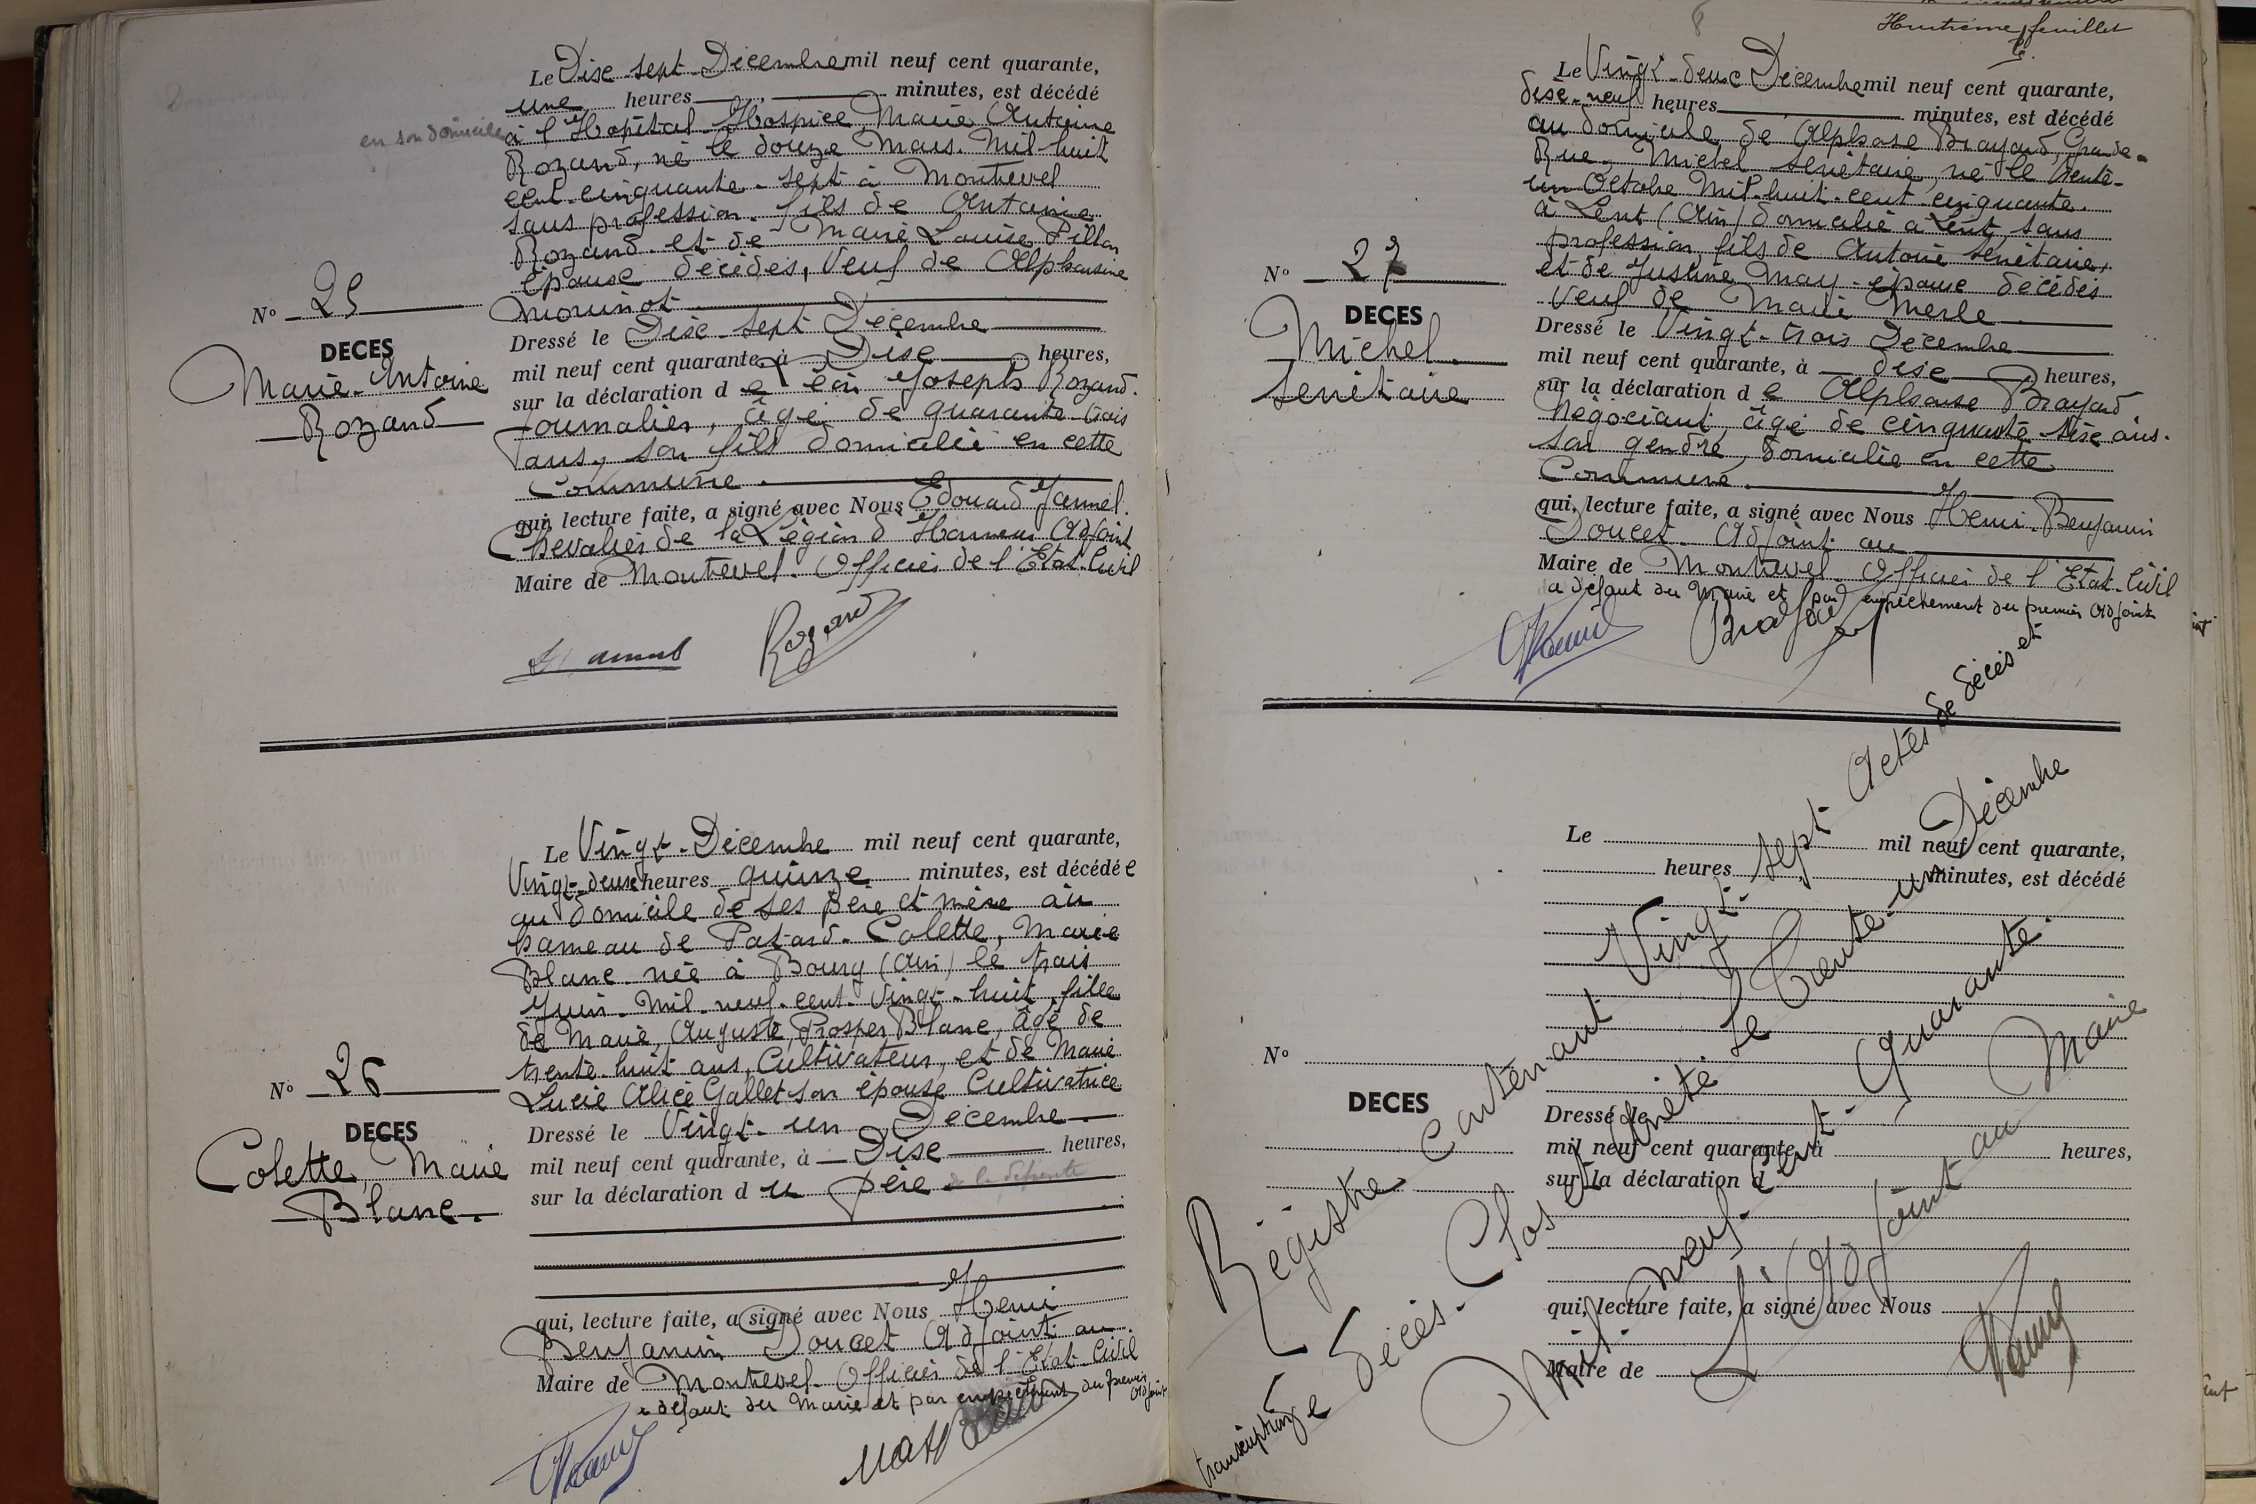 en son domicile
Le Dise sept Décembre mil neuf cent quarante,
une heures , minutes, est décédé
à l'Hopital Hospice Marie Antoine
Rozand, né le douze Mars Mil huit
cent cinquante-sept à Montrevel
sans profession. fils de Antoine
Rozand et de Marie Louise Pillon
épouse décédés, Veuf de Alphonsine
Nº 25
Dressé le Dise sept Décembre
DECES
mil neuf cent quarante, à Dise heures,
Marie-Antoine
Rozand
sur la déclaration de Léon Joseph Rozand.
Journalier, âgé de quarante-trois
ans, son fils domicilié en cette
Commune.
qui, lecture faite, a signé avec Nous Edouard Jannel.
Chevalier de la Légion d'Honneur Adjoint
Maire de Montrevel. Officier de l'Etat-Civil
Rozand
Le Vingt-Décembre mil neuf cent quarante,
Vingt-deux heures quinze minutes, est décédée
au domicile de ses père et mère au
hameau de Colette, Marie
Blanc née à Bourg (Ain) le trois
Juin Mil neuf-cent-Vingt-huit, fille
de Marie, Auguste, Prosper Blanc, âgé de
trente huit ans, Cultivateur, et de Marie
Lucie Alice Gallet son épouse Cultivatrice
Nº 26
Dressé le Vingt-un Décembre
DECES
Colette, Marie
Blanc.
mil neuf cent quarante, à Dise heures,
sur la déclaration du père de la défunte
qui, lecture faite, a signé avec Nous Henri
Benjamin Doucet Adjoint au
Maire de Montrevel. Officier de l'Etat-Civil
a défaut du Maire et par empêchement du premier Adjoint
Huitième feuillet
Le Vingt-deux Décembre mil neuf cent quarante,
dise-neuf heures minutes, est décédé
au domicile de Alphose Brayard, Grande-
Rue. Michel Senétaire, né le trente-
un Octobre Mil-huit-cent-cinquante.
à Lent (Ain) domicilié à Lent, sans
profession, fils de Antoine Senétaire,
et de Justine May. épouse décédés
Veuf de Marie Merle
Nº 27
DECES
Michel.
Senétaire
Dressé le Vingt-trois Décembre
mil neuf cent quarante, à dise heures,
sur la déclaration de Alphonse Brayard
Négociant, âgé de cinquante-sise ans.
son gendre, domicilié en cette
Commune.
qui, lecture faite, a signé avec Nous Henri-Benjamin
Doucet. Adjoint au
Maire de Montrevel. Officier de l'Etat-Civil
a défaut du Maire et par empêchement du premier Adjoint
Le mil neuf cent quarante,
heures minutes, est décédé
Nº
DECES
Dressé le
mil neuf cent quarante, à heures,
sur la déclaration d
qui, lecture faite, a signé avec Nous
Maire de
Régistre contenant Vingt-sept Actes de décès et
transcription de décès. Clos et arrêté le trente-un Décembre
Mil neuf-cent-Quarante.
L'Adjoint au Maire